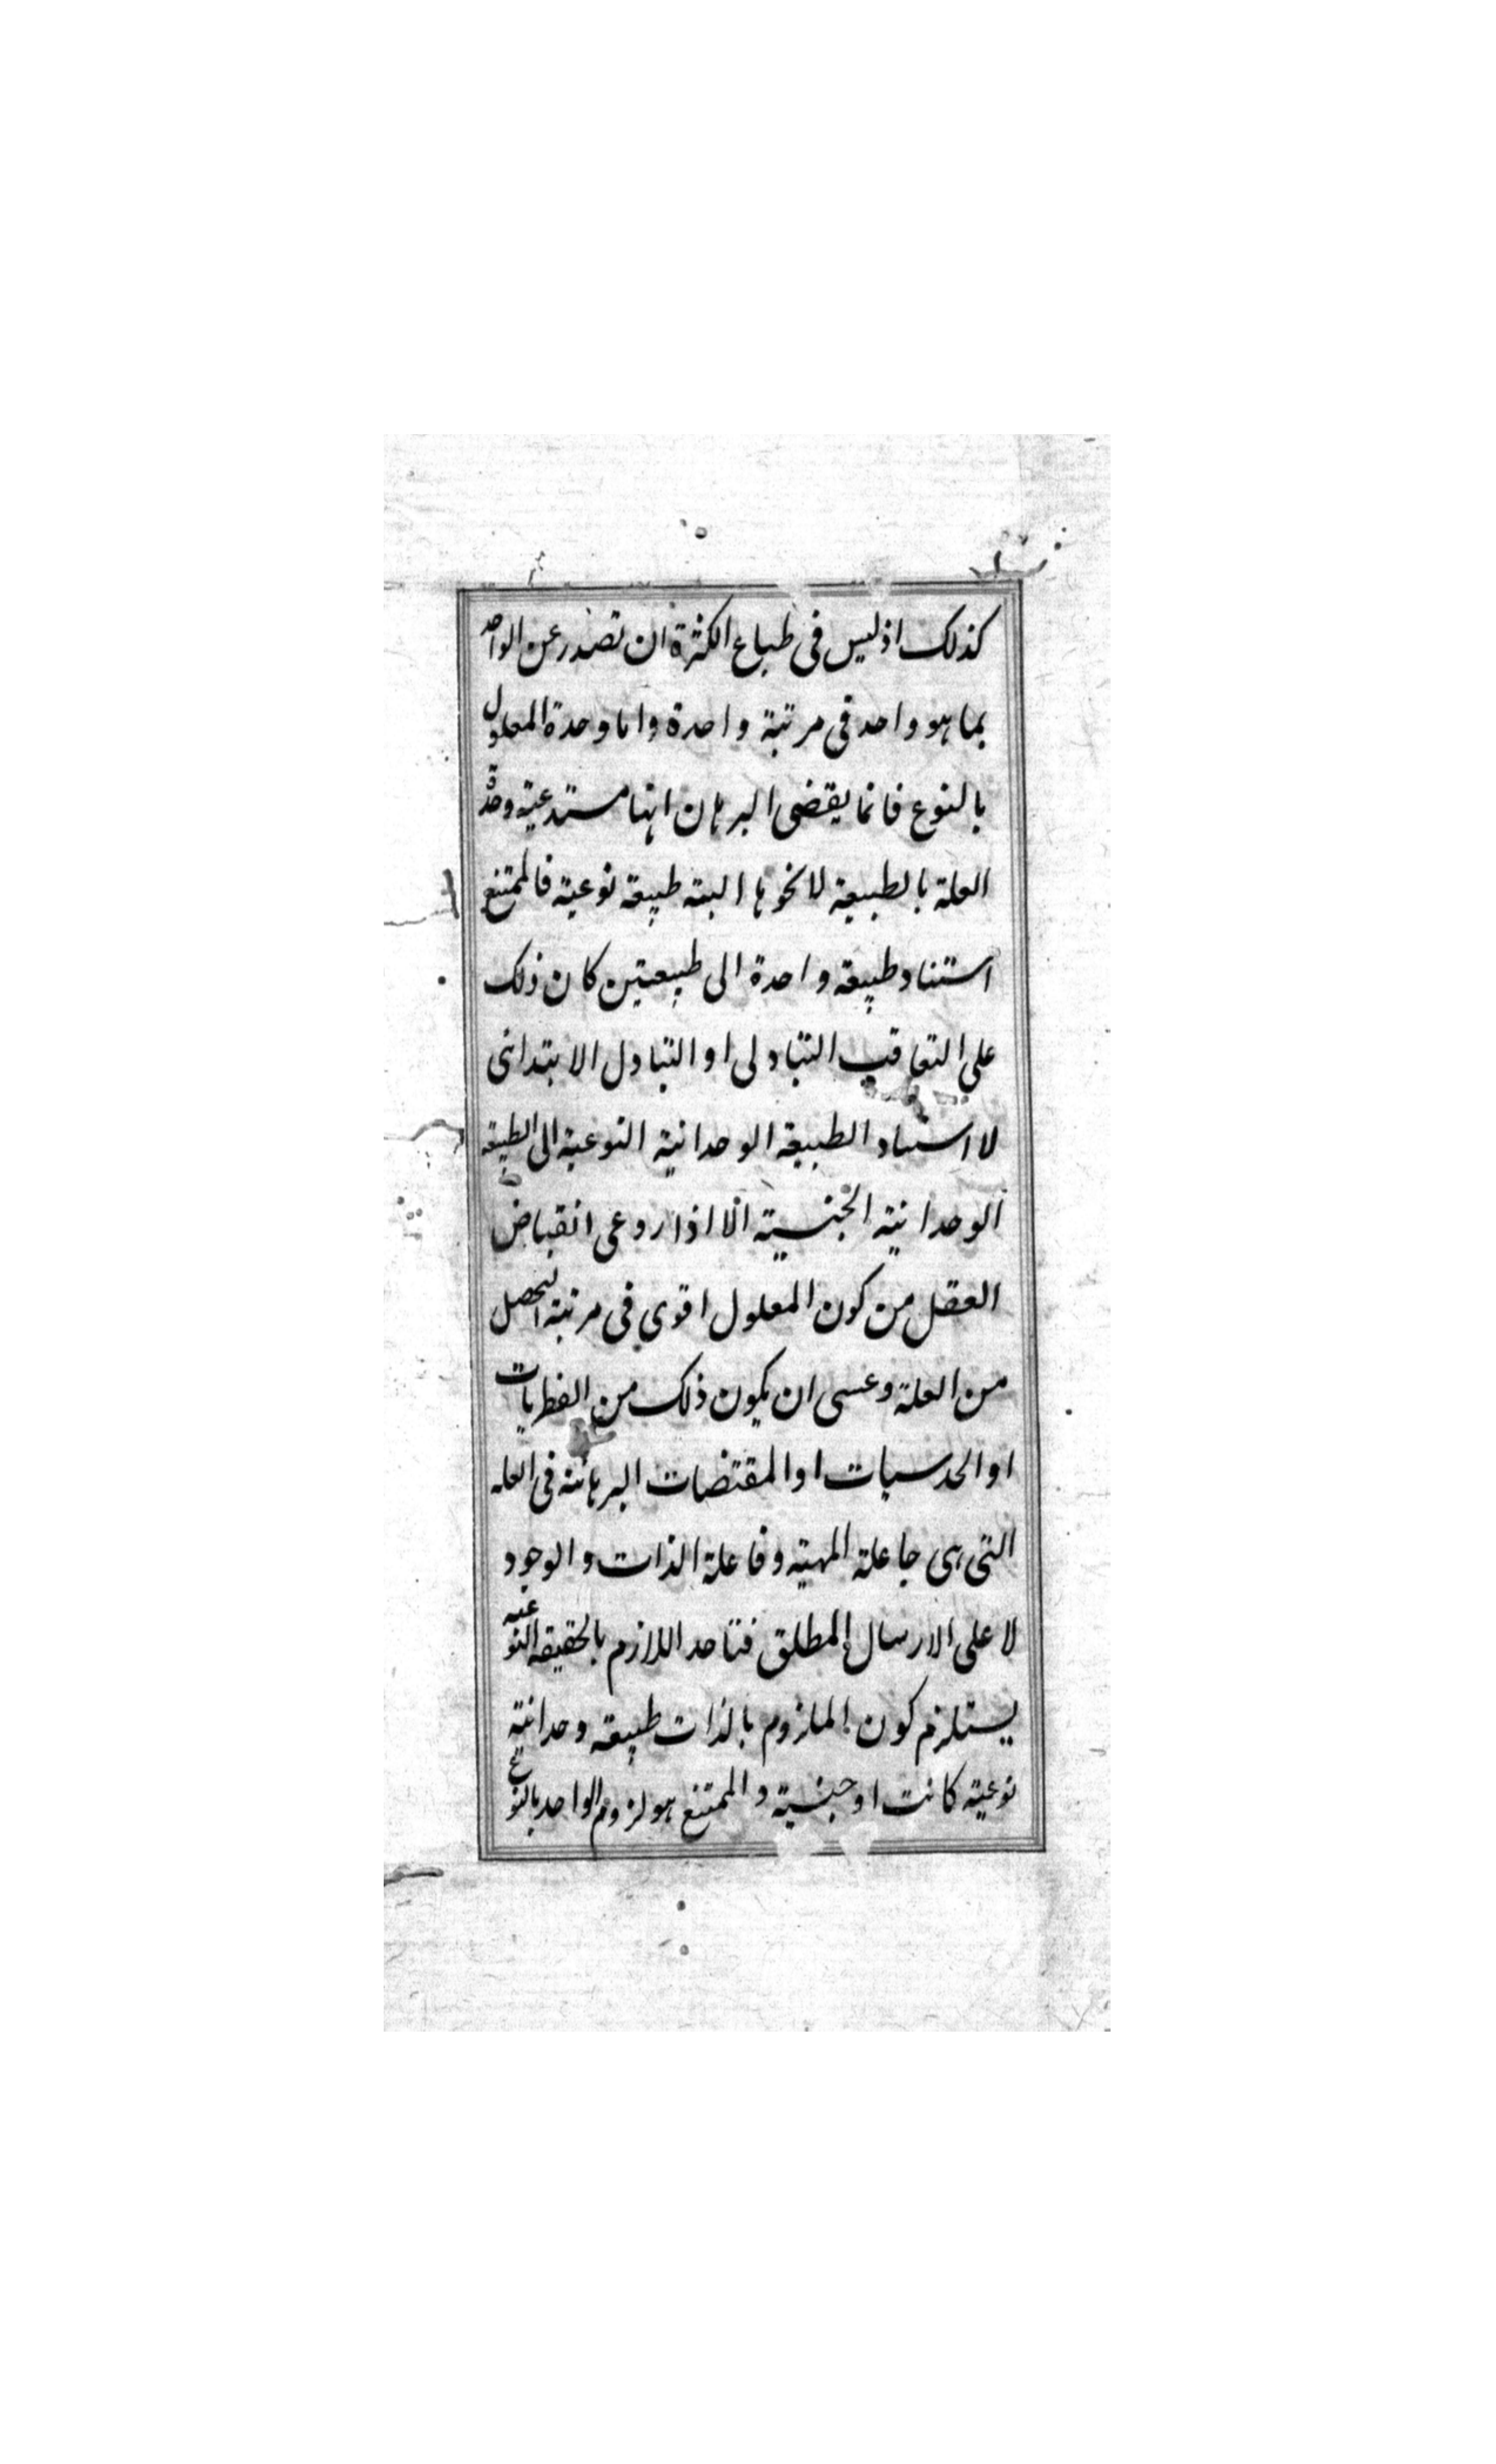 كذلك اذ ليس فى طباع الكثرة ان تصدر عن الواحد
بما هو واحد فى مرتبة واحدة واما وحدة المعلول
بالنوع فانما يقضى البرهان انها مستدعية وحدة
العلة بالطبيعة لا نحوها البتة طبيعة نوعية فالممتنع
استناد طبيعة واحدة الى طبيعتين كان ذلك
على التعاقب التبادلى او التبادل الابتدائى
لا استناد الطبيعة الوحدانية النوعية الى الطبيعة
الوحدانية الجنسية الا اذا روعى انقباض
العقل من كون المعلول اقوى فى مرتبة التحصل
من العلة وعسى ان يكون ذلك من الفطريات
او الحدسيات او المقتضات البرهانية فى العلة
التى هى جاعلة المهية وفاعلة الذات والوجود
لا على الارسال المطلق فتاحد اللازم بالحقيقة النوعية
يستلزم كون الملزوم بالذات طبيعة وحدانية
نوعية كانت او جنسية و الممتنع هو لزوم الواحد بالنوع